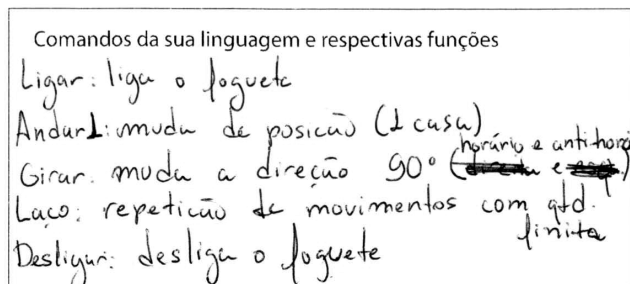 Comandos da sua linguagem e respectivas funções
Ligar: liga o foguete
Andar1: muda de posição (1 casa)
Girar: muda a direção 90° (horário e antihorá)
Laço: repetição de movimentos com qtd. finita
Desligar: desliga o foguete